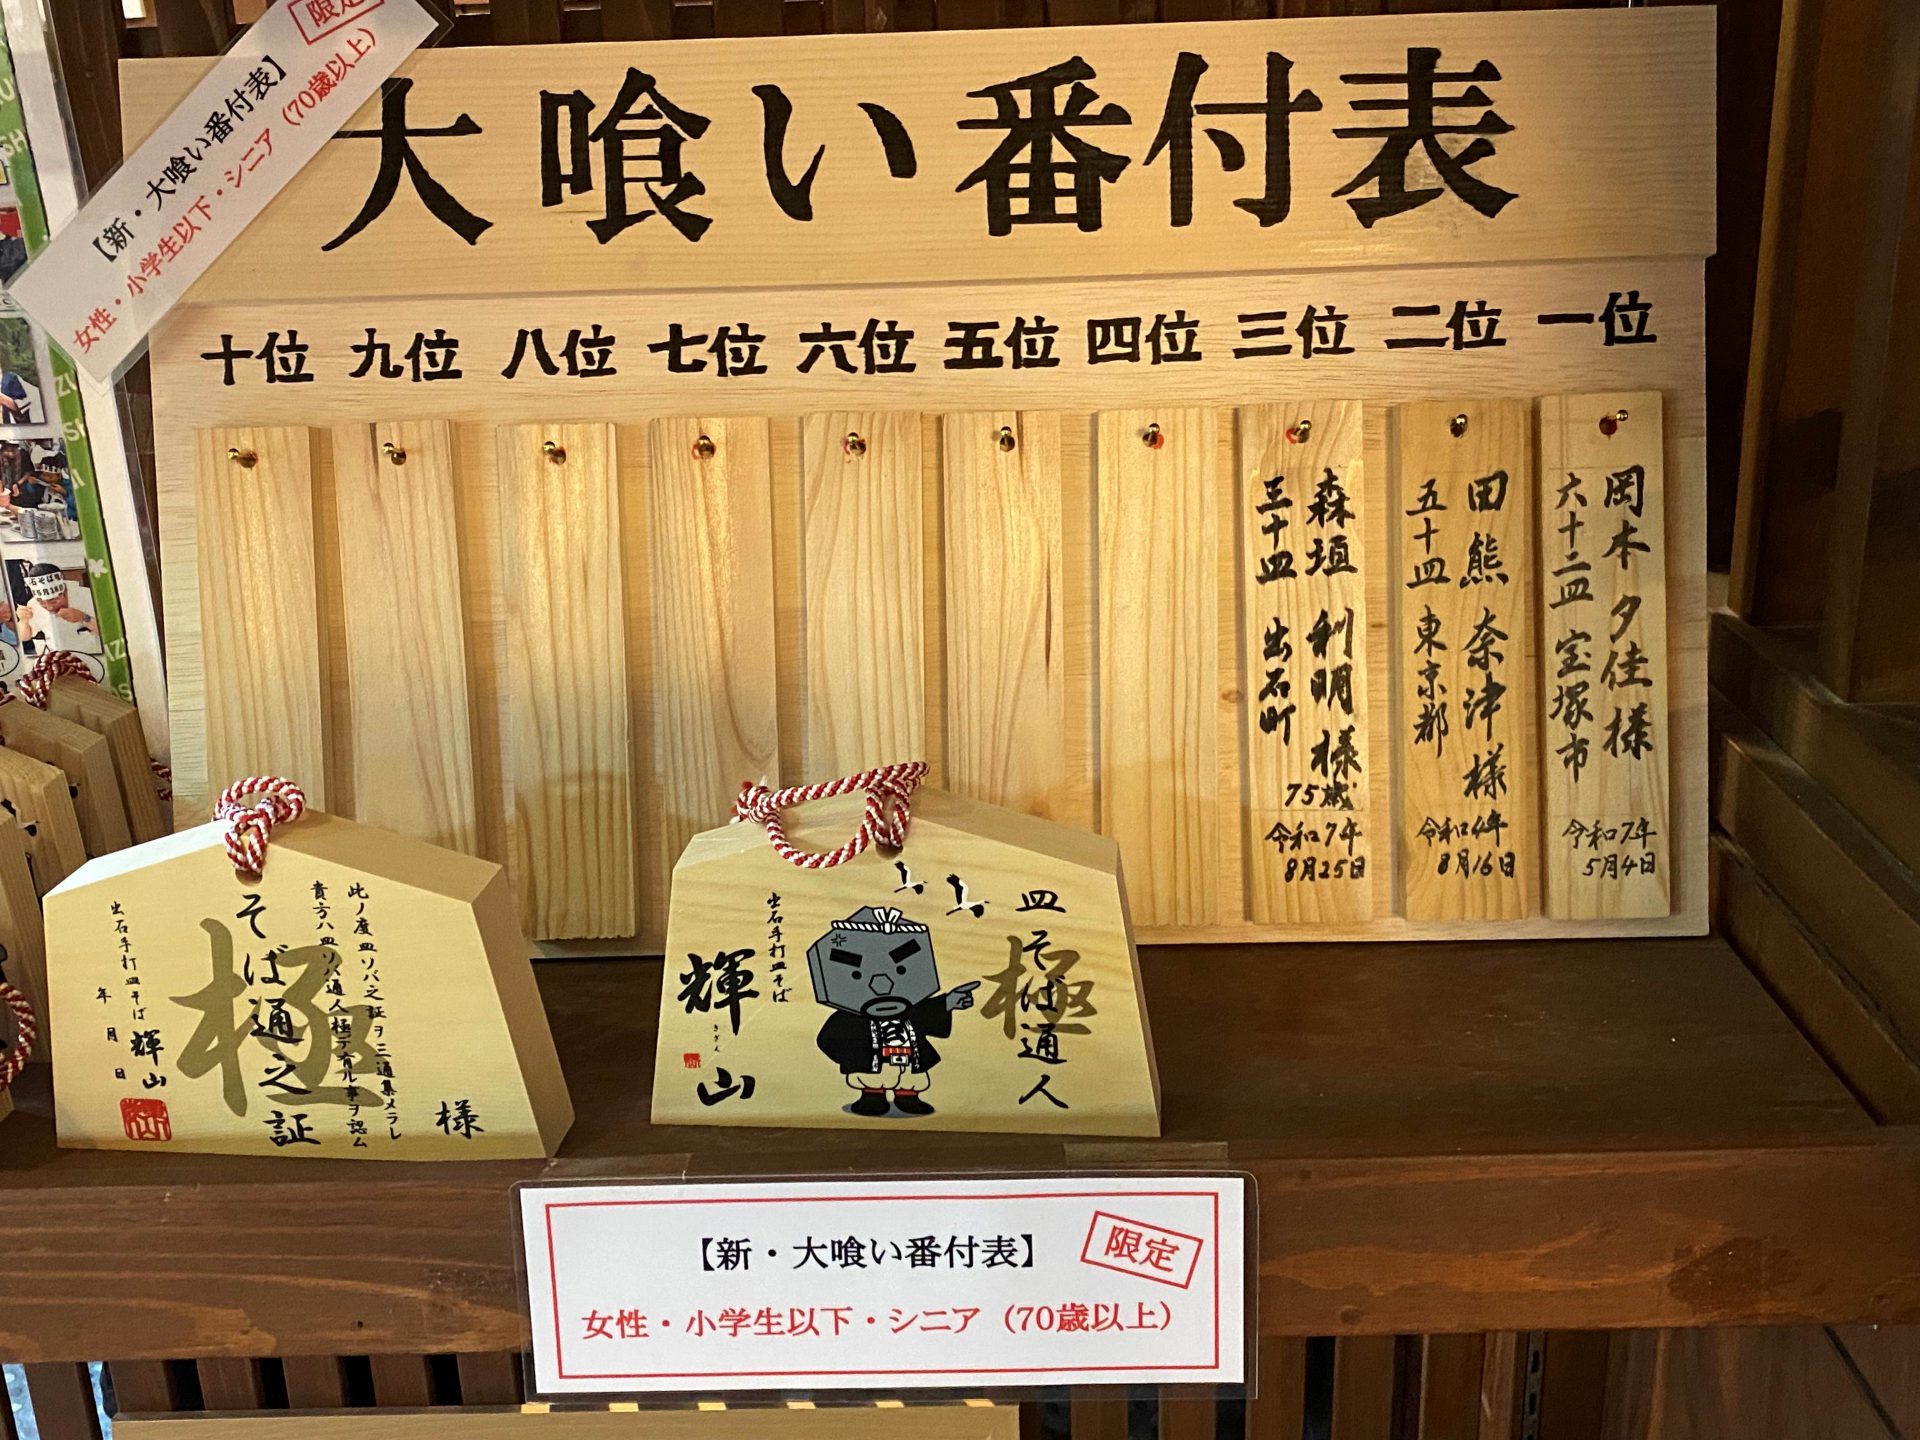 大喰い番付表
限定
【新・大喰い番付表】
女性・小学生以下・シニア（70歳以上）
一位
二位
三位
四位
五位
六位
七位
八位
九位
十位
岡本 夕佳様
六十二皿 宝塚市
令和7年
5月4日
田熊 奈津様
五十皿 東京都
令和4年
8月16日
森垣 利明様
75歳
三十皿 出石町
令和7年
8月25日
皿そば通人
極
出石手打皿そば
輝山
きざん
様
此ノ度皿ソバ之証ヲ三通集メラレ
貴方ハ皿ソバ通人極デ有ル事ヲ認ム
そば通之証
極
出石手打皿そば 輝山
年 月 日
【新・大喰い番付表】
限定
女性・小学生以下・シニア（70歳以上）